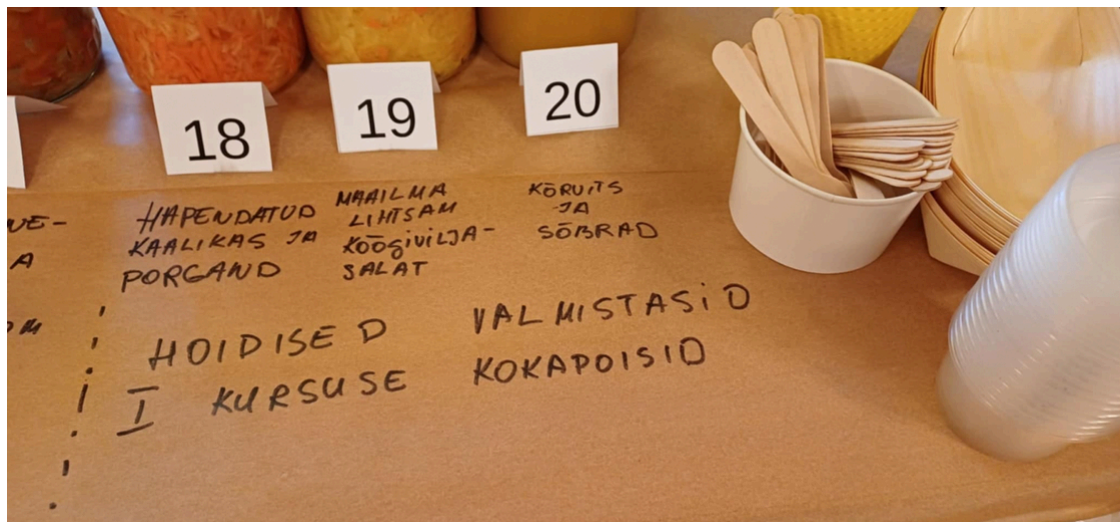 18
19
20
HAPENDATUD
KAALIKAS JA
PORGAND
MAAILMA
LIHTSAM
KÖÖGIVILJA-
SALAT
KÕRVITS
JA
SÕBRAD
HOIDISED VALMISTASID
I KURSUSE KOKAPOISID